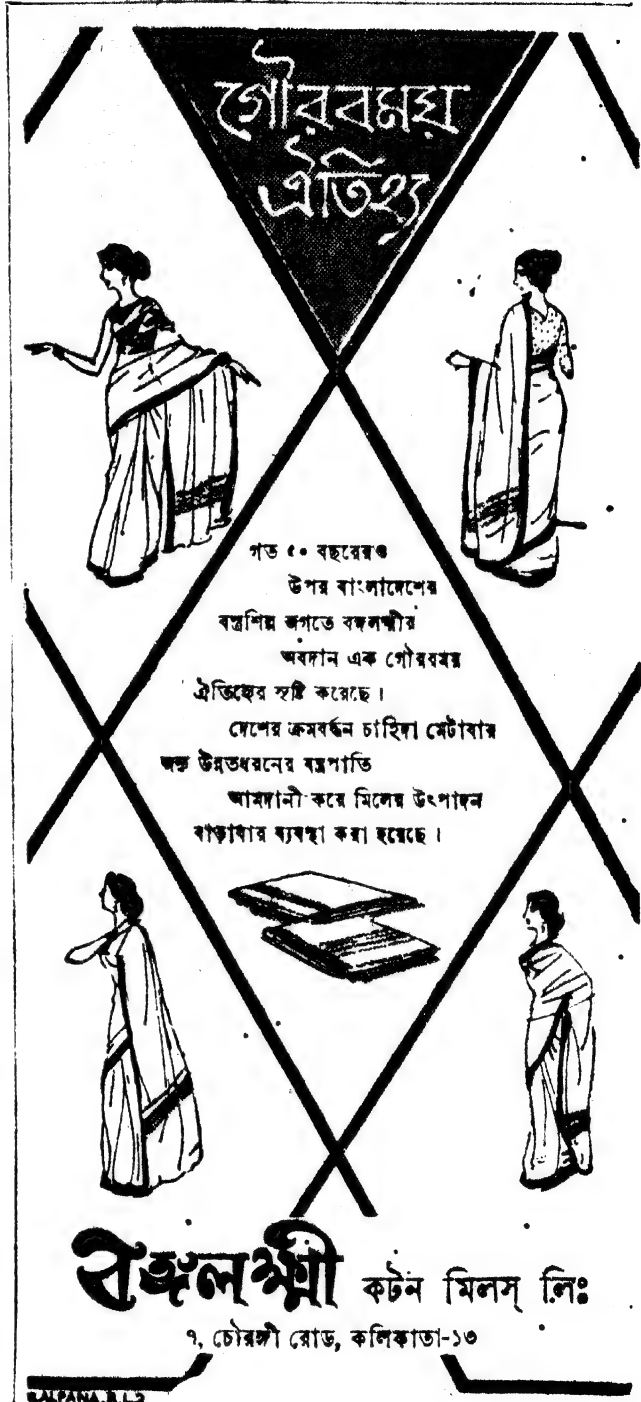 গৌরবময়
ঐতিহ্য
গত ৫০ বছরেরও
উপর বাংলাদেশের
বস্ত্রশিল্প জগতে বঙ্গলক্ষ্মীর
অবদান এক গৌরবময়
ঐতিহ্যের সৃষ্টি করেছে।
দেশের ক্রমবর্দ্ধন চাহিদা মেটাবার
জন্য উন্নতধরনের যন্ত্রপাতি
আমদানী করে মিলের উৎপাদন
বাড়াবার ব্যবস্থা করা হয়েছে।
বঙ্গলক্ষ্মী কটন মিলস্ লিঃ
৭, চৌরঙ্গী রোড, কলিকাতা-১৩
KALPANA.B.L.2